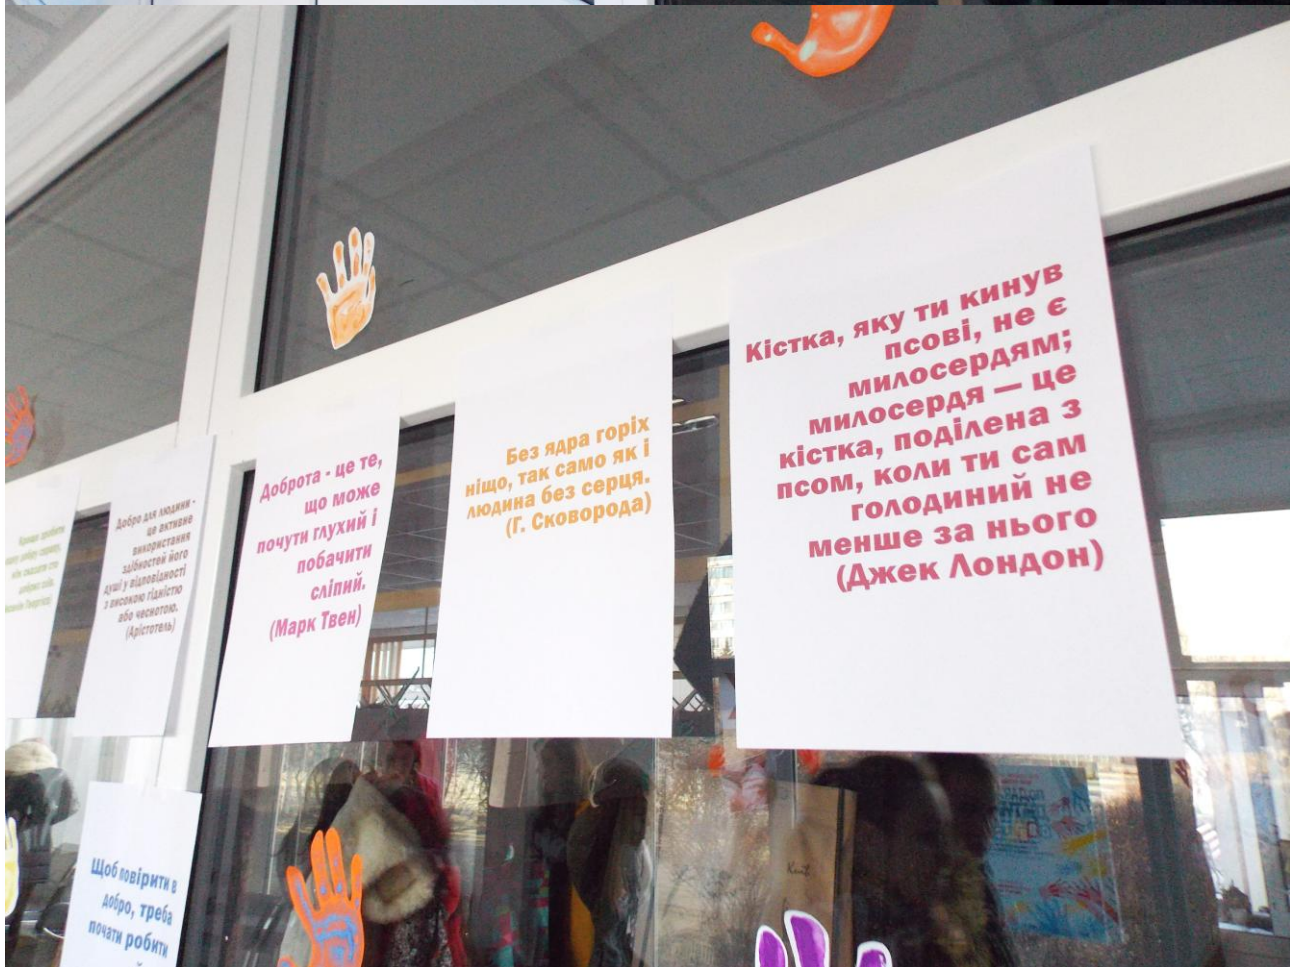 добру справу,
Добро для людини -
це активне
використання
здібностей його
душі у відповідності
з високою гідністю
або чеснотою.
(Арістотель)
Доброта - це те,
що може
почути глухий і
побачити
сліпий.
(Марк Твен)
Без ядра горіх
ніщо, так само як і
людина без серця.
(Г. Сковорода)
Кістка, яку ти кинув
псові, не є
милосердям;
милосердя — це
кістка, поділена з
псом, коли ти сам
голодиний не
менше за нього
(Джек Лондон)
Щоб повірити в
добро, треба
почати робити
Kent